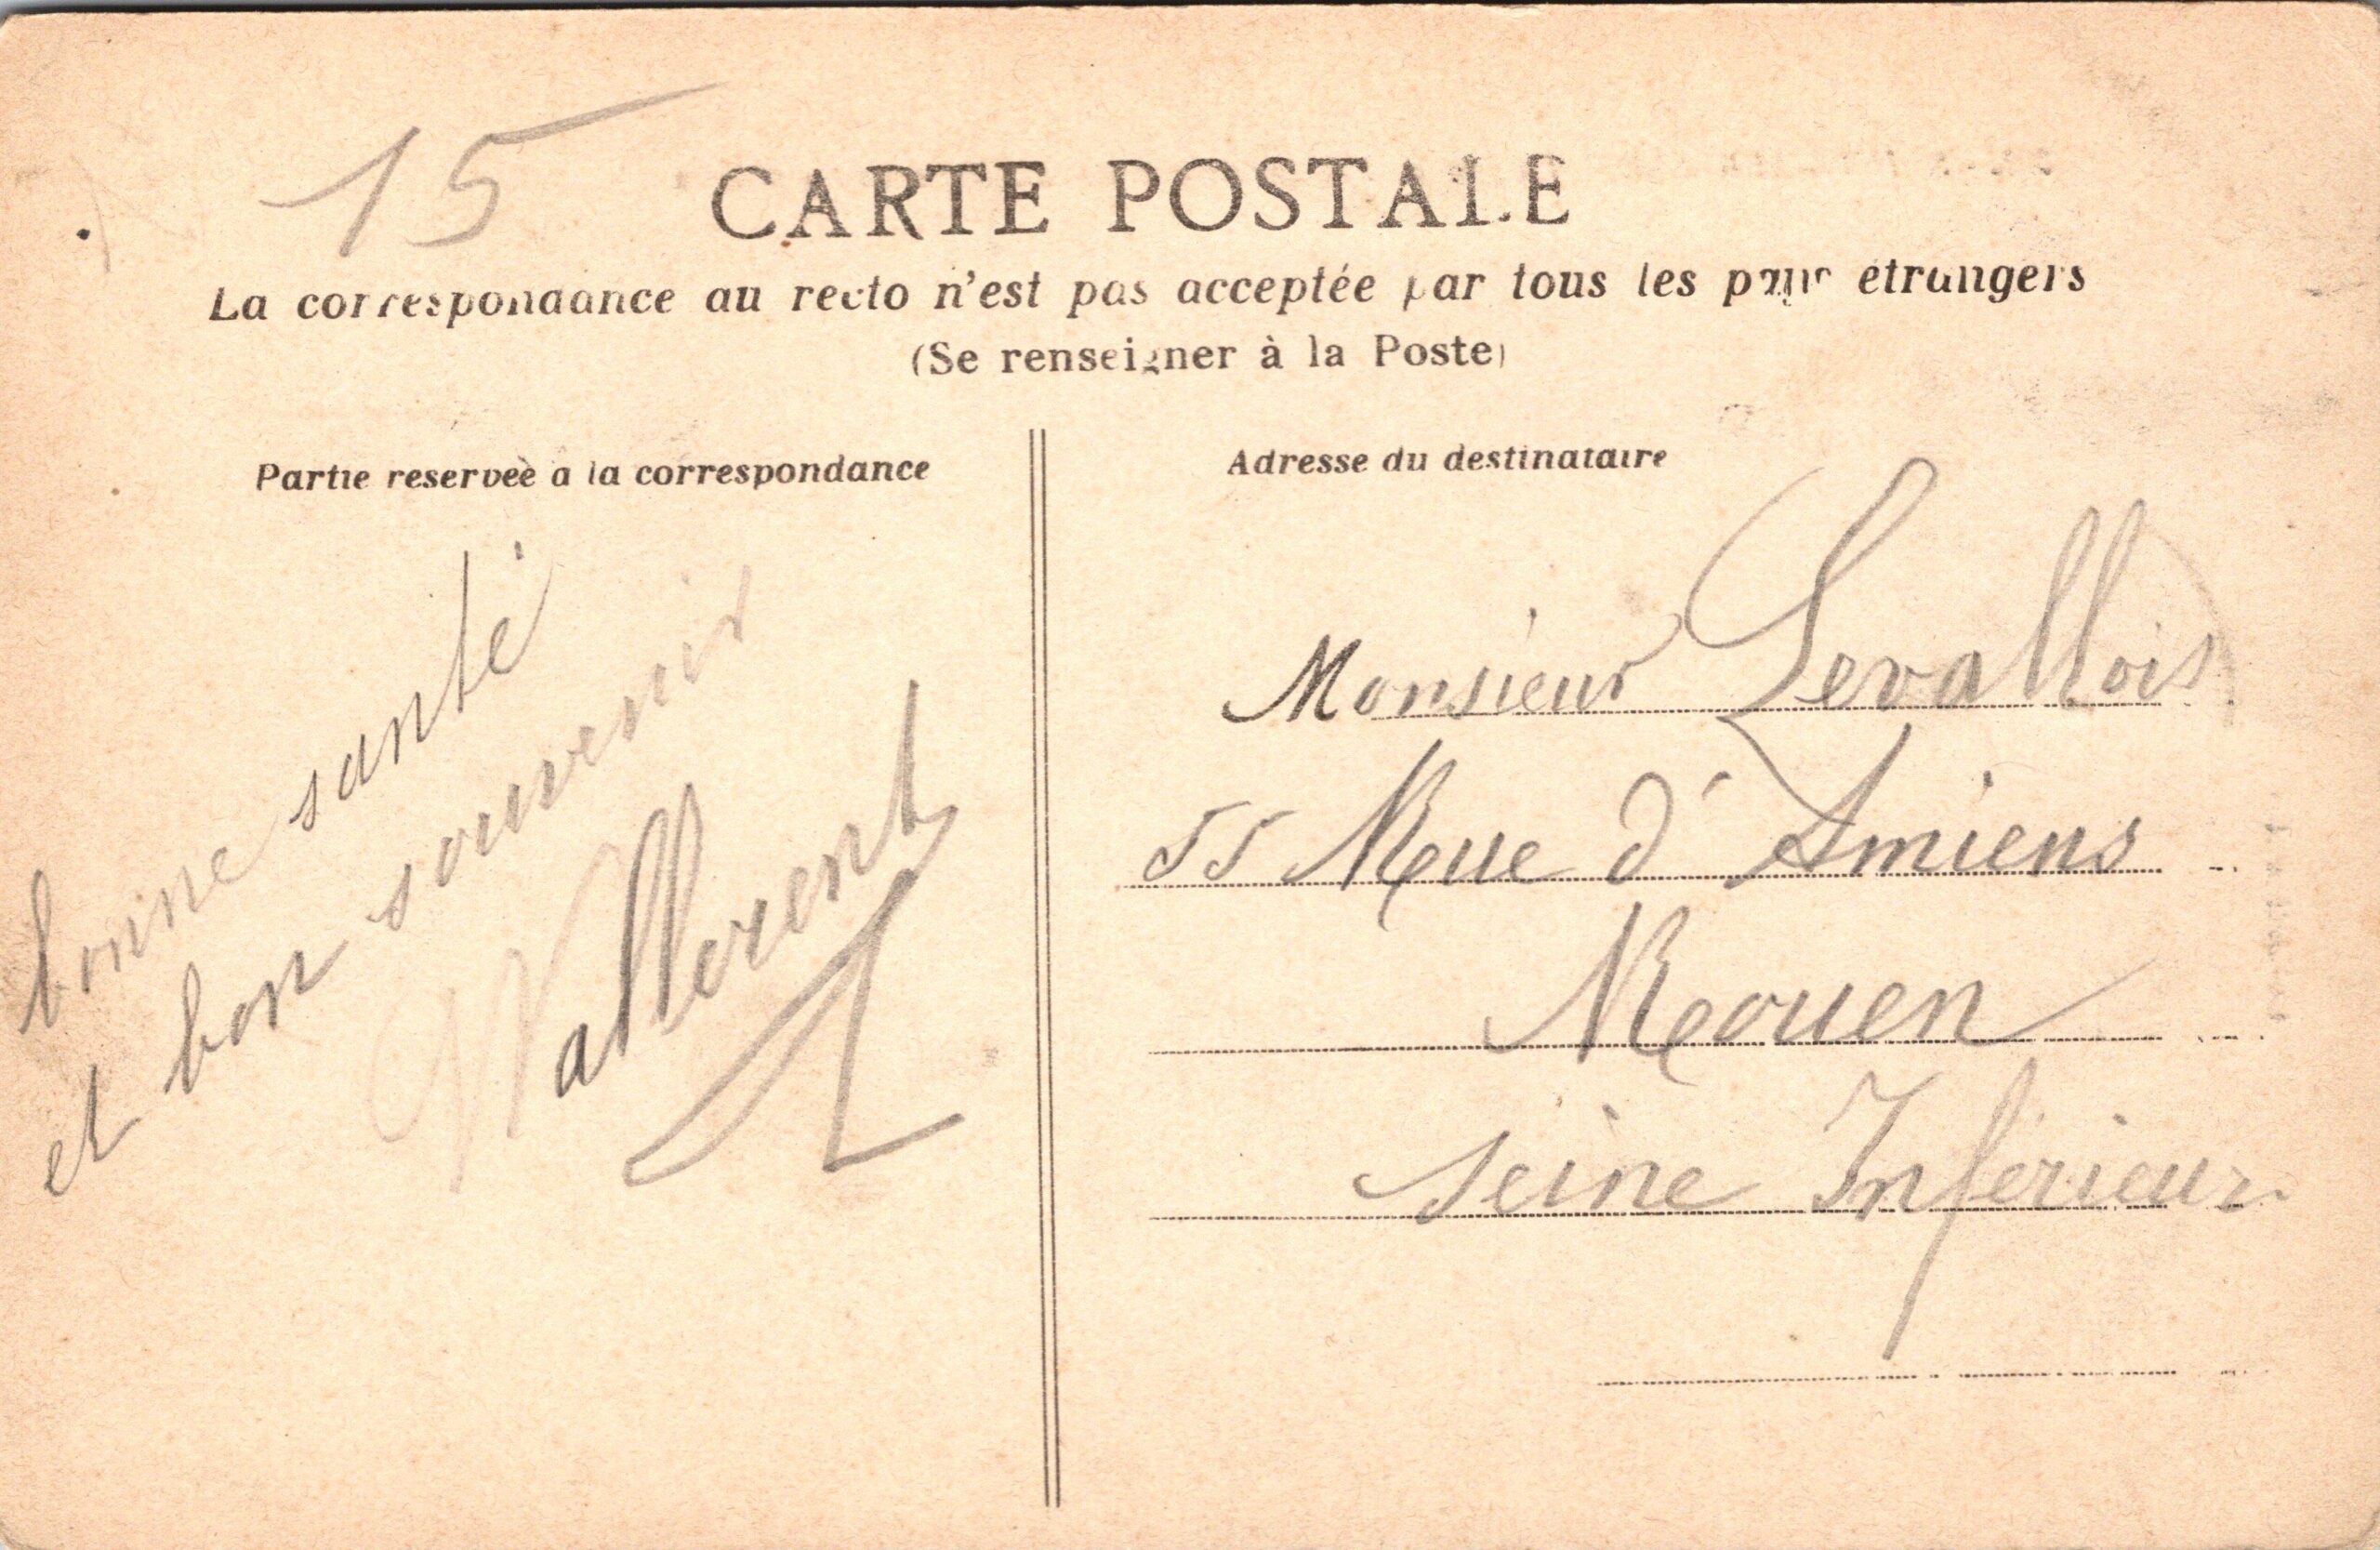 15
CARTE POSTALE
La correspondance au recto n'est pas acceptée par tous les pays étrangers
(Se renseigner à la Poste)
Partie réservée à la correspondance
Adresse du destinataire
bonne santé
et bon souvenir
Vallerent
Monsieur Levallois
55 Rue d'Amiens
Rouen
Seine Inférieur